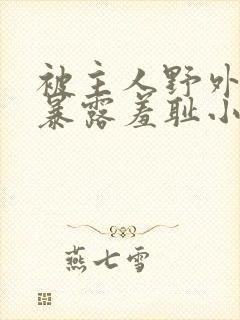 被主人野外
暴露羞耻小
燕七雪